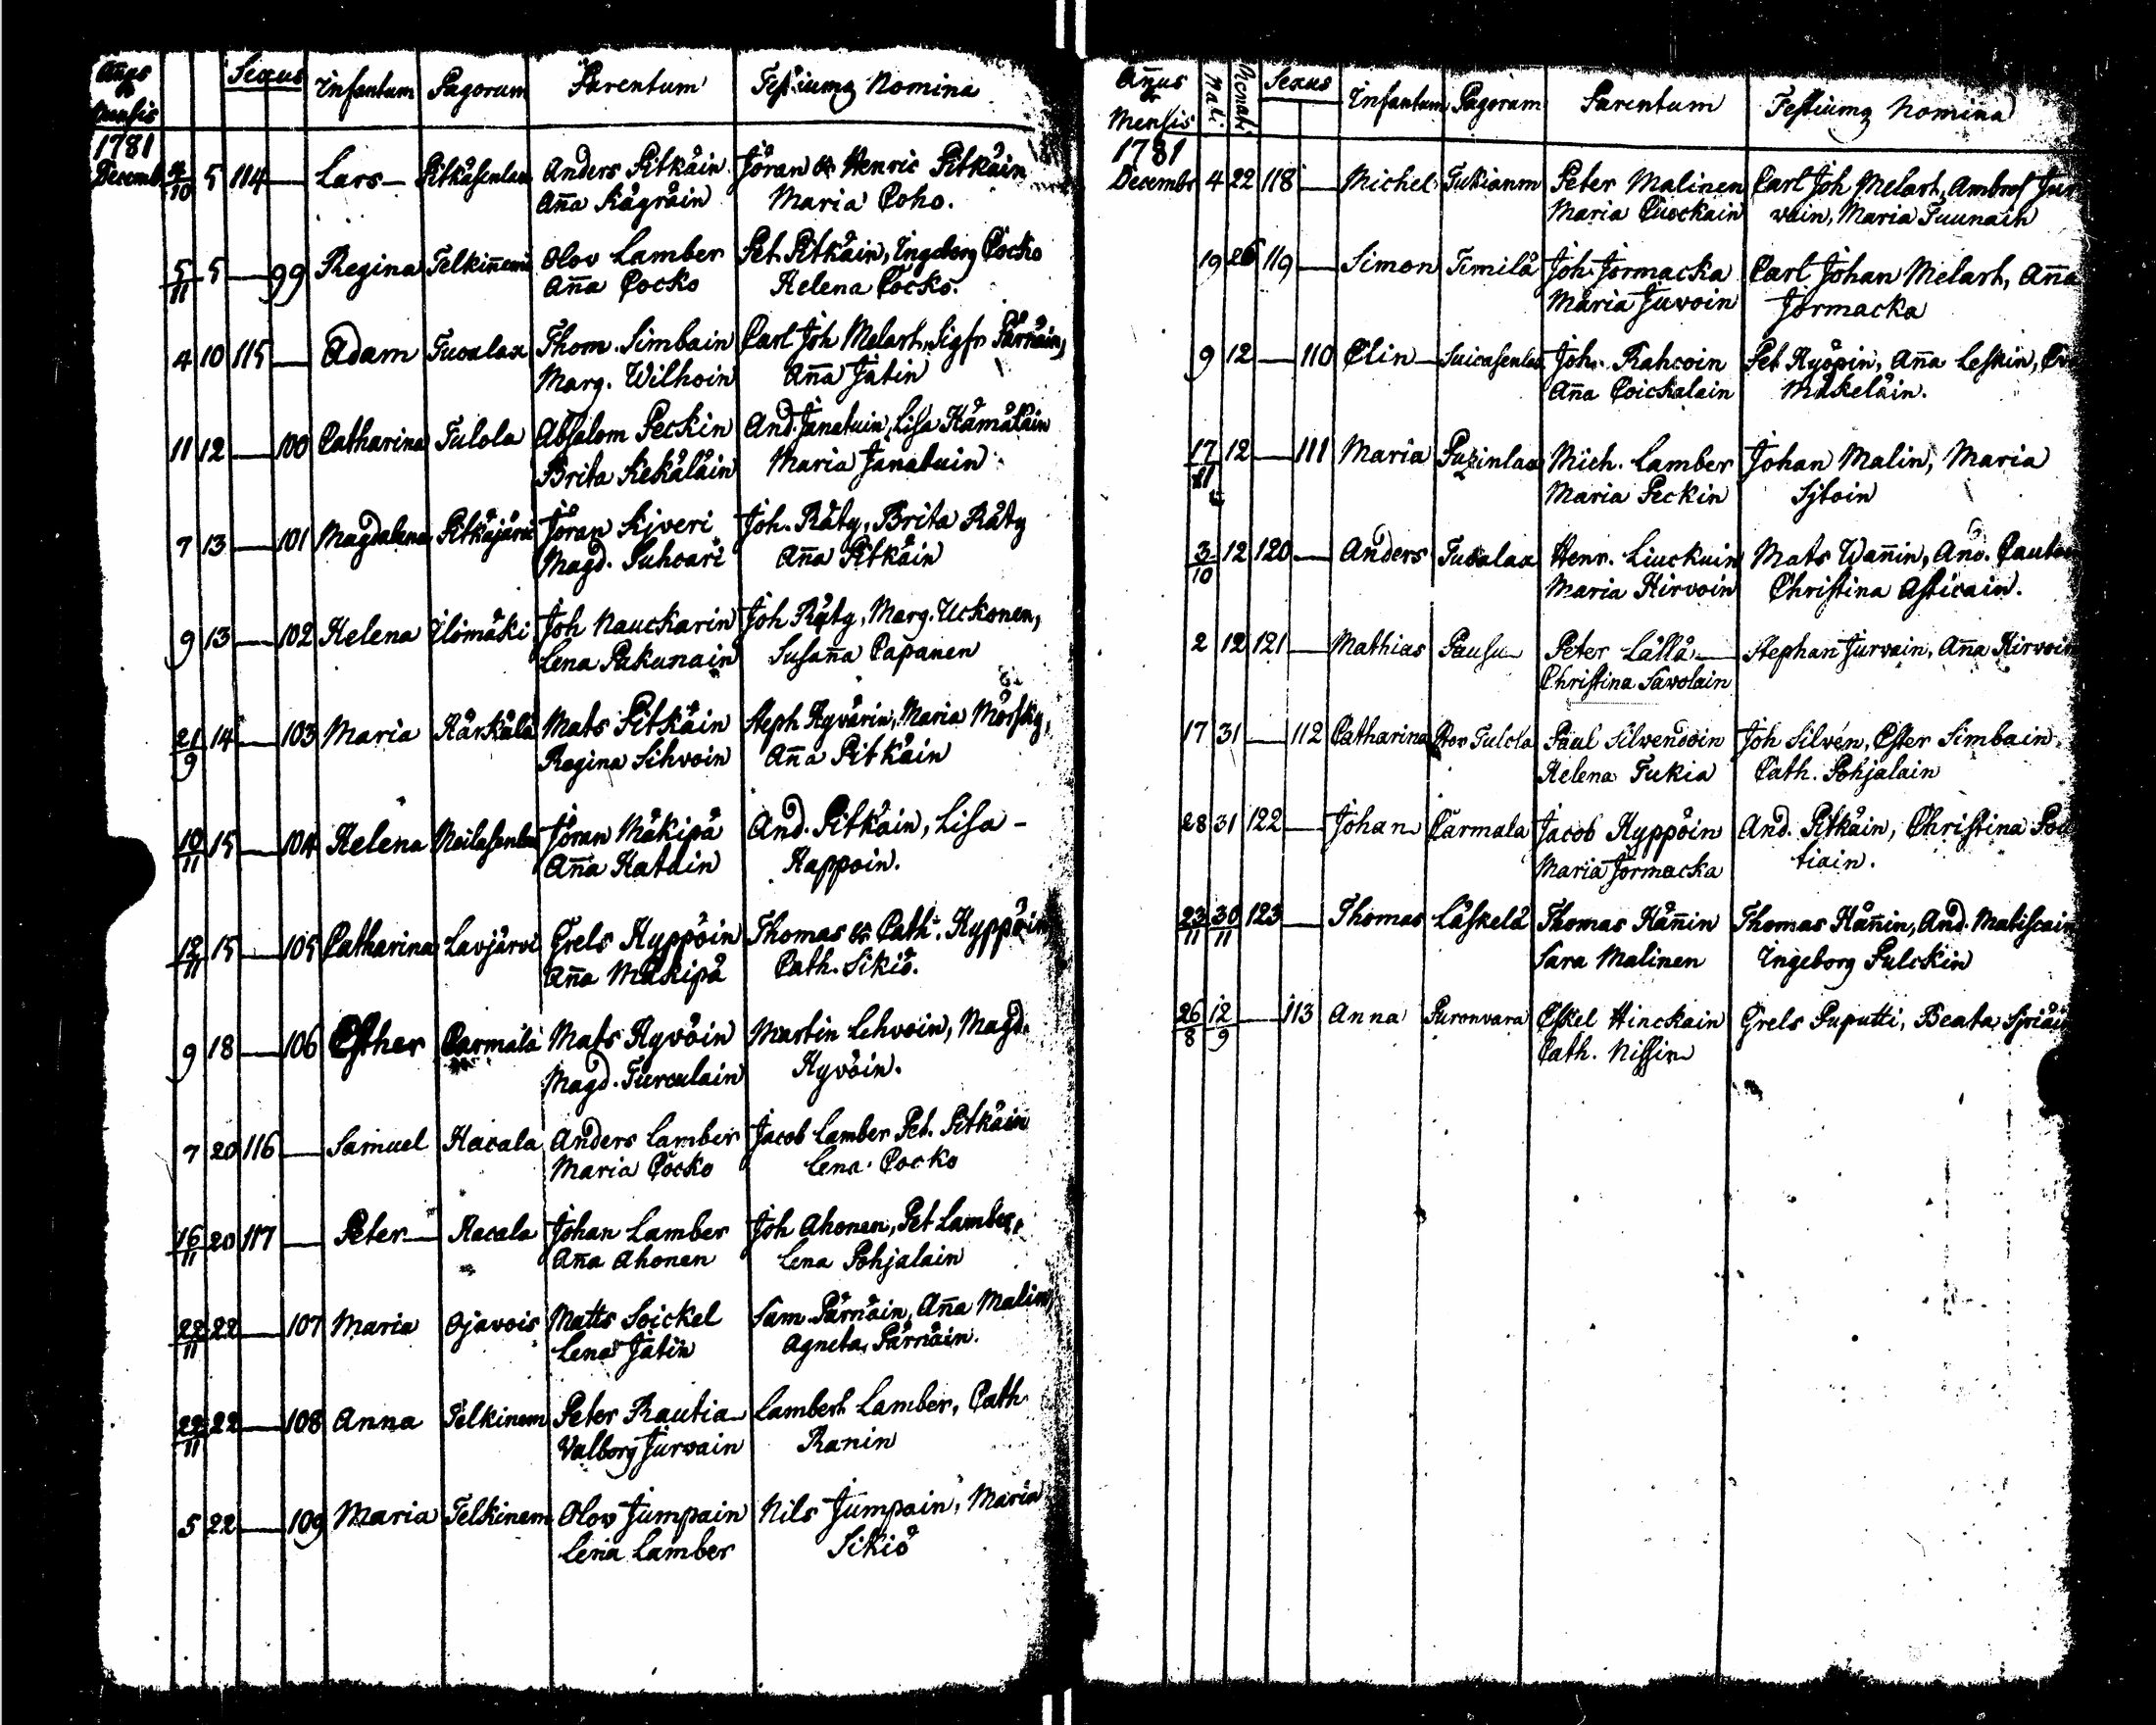 Añus & Mensis Sexus Infantum Pagorum Parentum Testiumq Nomina
1781
Decemb. 10 5 114 — Lars — Pitkäsenlax Anders Pitkäin Jöran & Henric Pitkäin
Aña Kägräin Maria Coho.
5/11 5 — 99 Regina Telkiñemi Olov Lamber Pet. Pitkäin, Ingeborg Cocko
Aña Cocko Helena Cocko.
4 10 115 — Adam Tuoalax Thom. Simbain Carl Joh Melart, Sigfr Pärnäin,
Marg. Wilhoin Aña Jatin
11 12 — 100 Catharina Tulola Absalom Peckin And. Janatuin, Lisa Hämäläin
Brita Kekäläin Maria Janatuin
7 13 — 101 Magdalena Pitkäjärvi Jöran Kjveri Joh. Räty, Brita Räty
Magd. Suhoari Aña Pitkäin
9 13 — 102 Helena Ilömäki Joh Nauckarin Joh Räty, Marg. Uckonen,
Lena Pakunain Susaña Papanen
21/9 14 — 103 Maria Härkälä Mats Pitkäin Steph Hyvärin, Maria Mörsky,
Regina Sihvoin Aña Pitkäin
10/11 15 — 104 Helena Jöran Mäkipä And. Pitkäin, Lisa -
Aña Katain Happoin.
12/11 15 — 105 Catharina Lavjärvi Grels Hyppöin Thomas & Cath. Hyppöin
Aña Mäkipä Cath. Sikiö.
9 18 — 106 Esther Carmala Mats Hyvöin Martin Lehvoin, Magd.
Magd. Turculain Hyvöin.
7 20 116 — Samuel Hacala Anders Lamber Jacob Lamber Pet. Pitkäin
Maria Cocko Lena Cocko
16/11 20 117 — Peter — Hacala Johan Lamber Joh Ahonen, Pet Lamber,
Aña Ahonen Lena Pohjalain
22/11 22 — 107 Maria Ojavois Matts Soickel Sam Pärnäin, Aña Malin,
Lena Jatin Agneta Pärnäin.
22/11 22 — 108 Anna Telkinem Peter Rautia Lambert Lamber, Cath
Valborg Jurvain Ranin
5 22 — 109 Maria Telkinem Olov Jumpain Nils Jumpain, Maria
Lena Lamber Sikiö
Añus & Mensis Nati. Renati Sexus Infantum Pagorum Parentum Testiumq Nomina
1781
Decembr 4 22 118 — Michel Tukianm Peter Malinen Carl Joh Melart, Ambros Jur
Maria Cuockain vain, Maria Tuunain
19 26 119 — Simon Timilä Joh. Jormacka Carl Johan Melart, Aña
Maria Juvoin Jormacka
9 12 — 110 Elin — Suicasenlax Joh. Rahcoin Pet Hyöpin, Aña Leskin,
Aña Coickalain Mäkeläin.
17/11 12 — 111 Maria Puzinlax Mich. Lamber Johan Malin, Maria
Maria Peckin Sjtoin
3/10 12 120 — Anders Tuoalax Henr. Liuckuin Mats Wañin, And.
Maria Hirvoin Christina Asticain.
2 12 121 — Mathias Pausu — Peter Lällä — Stephan Jurvain, Aña Hirvoin
Christina Savolain
17 31 — 112 Catharina Stor Tulola Paul Silvendoin Joh Silven, Ester Simbain.
Helena Tukia Cath. Pohjalain
28 31 122 — Johan Carmala Jacob Hyppöin And. Pitkäin, Christina
Maria Jormacka tiain.
23/11 30/11 123 — Thomas Läskelä Thomas Häñin Thomas Häñin, And. Matiscain
Sara Malinen Ingeborg Pulckin
26/8 12/9 — 113 Anna Puronvara Eskel Hinckain Grels Puputti, Beata
Cath. Nissin